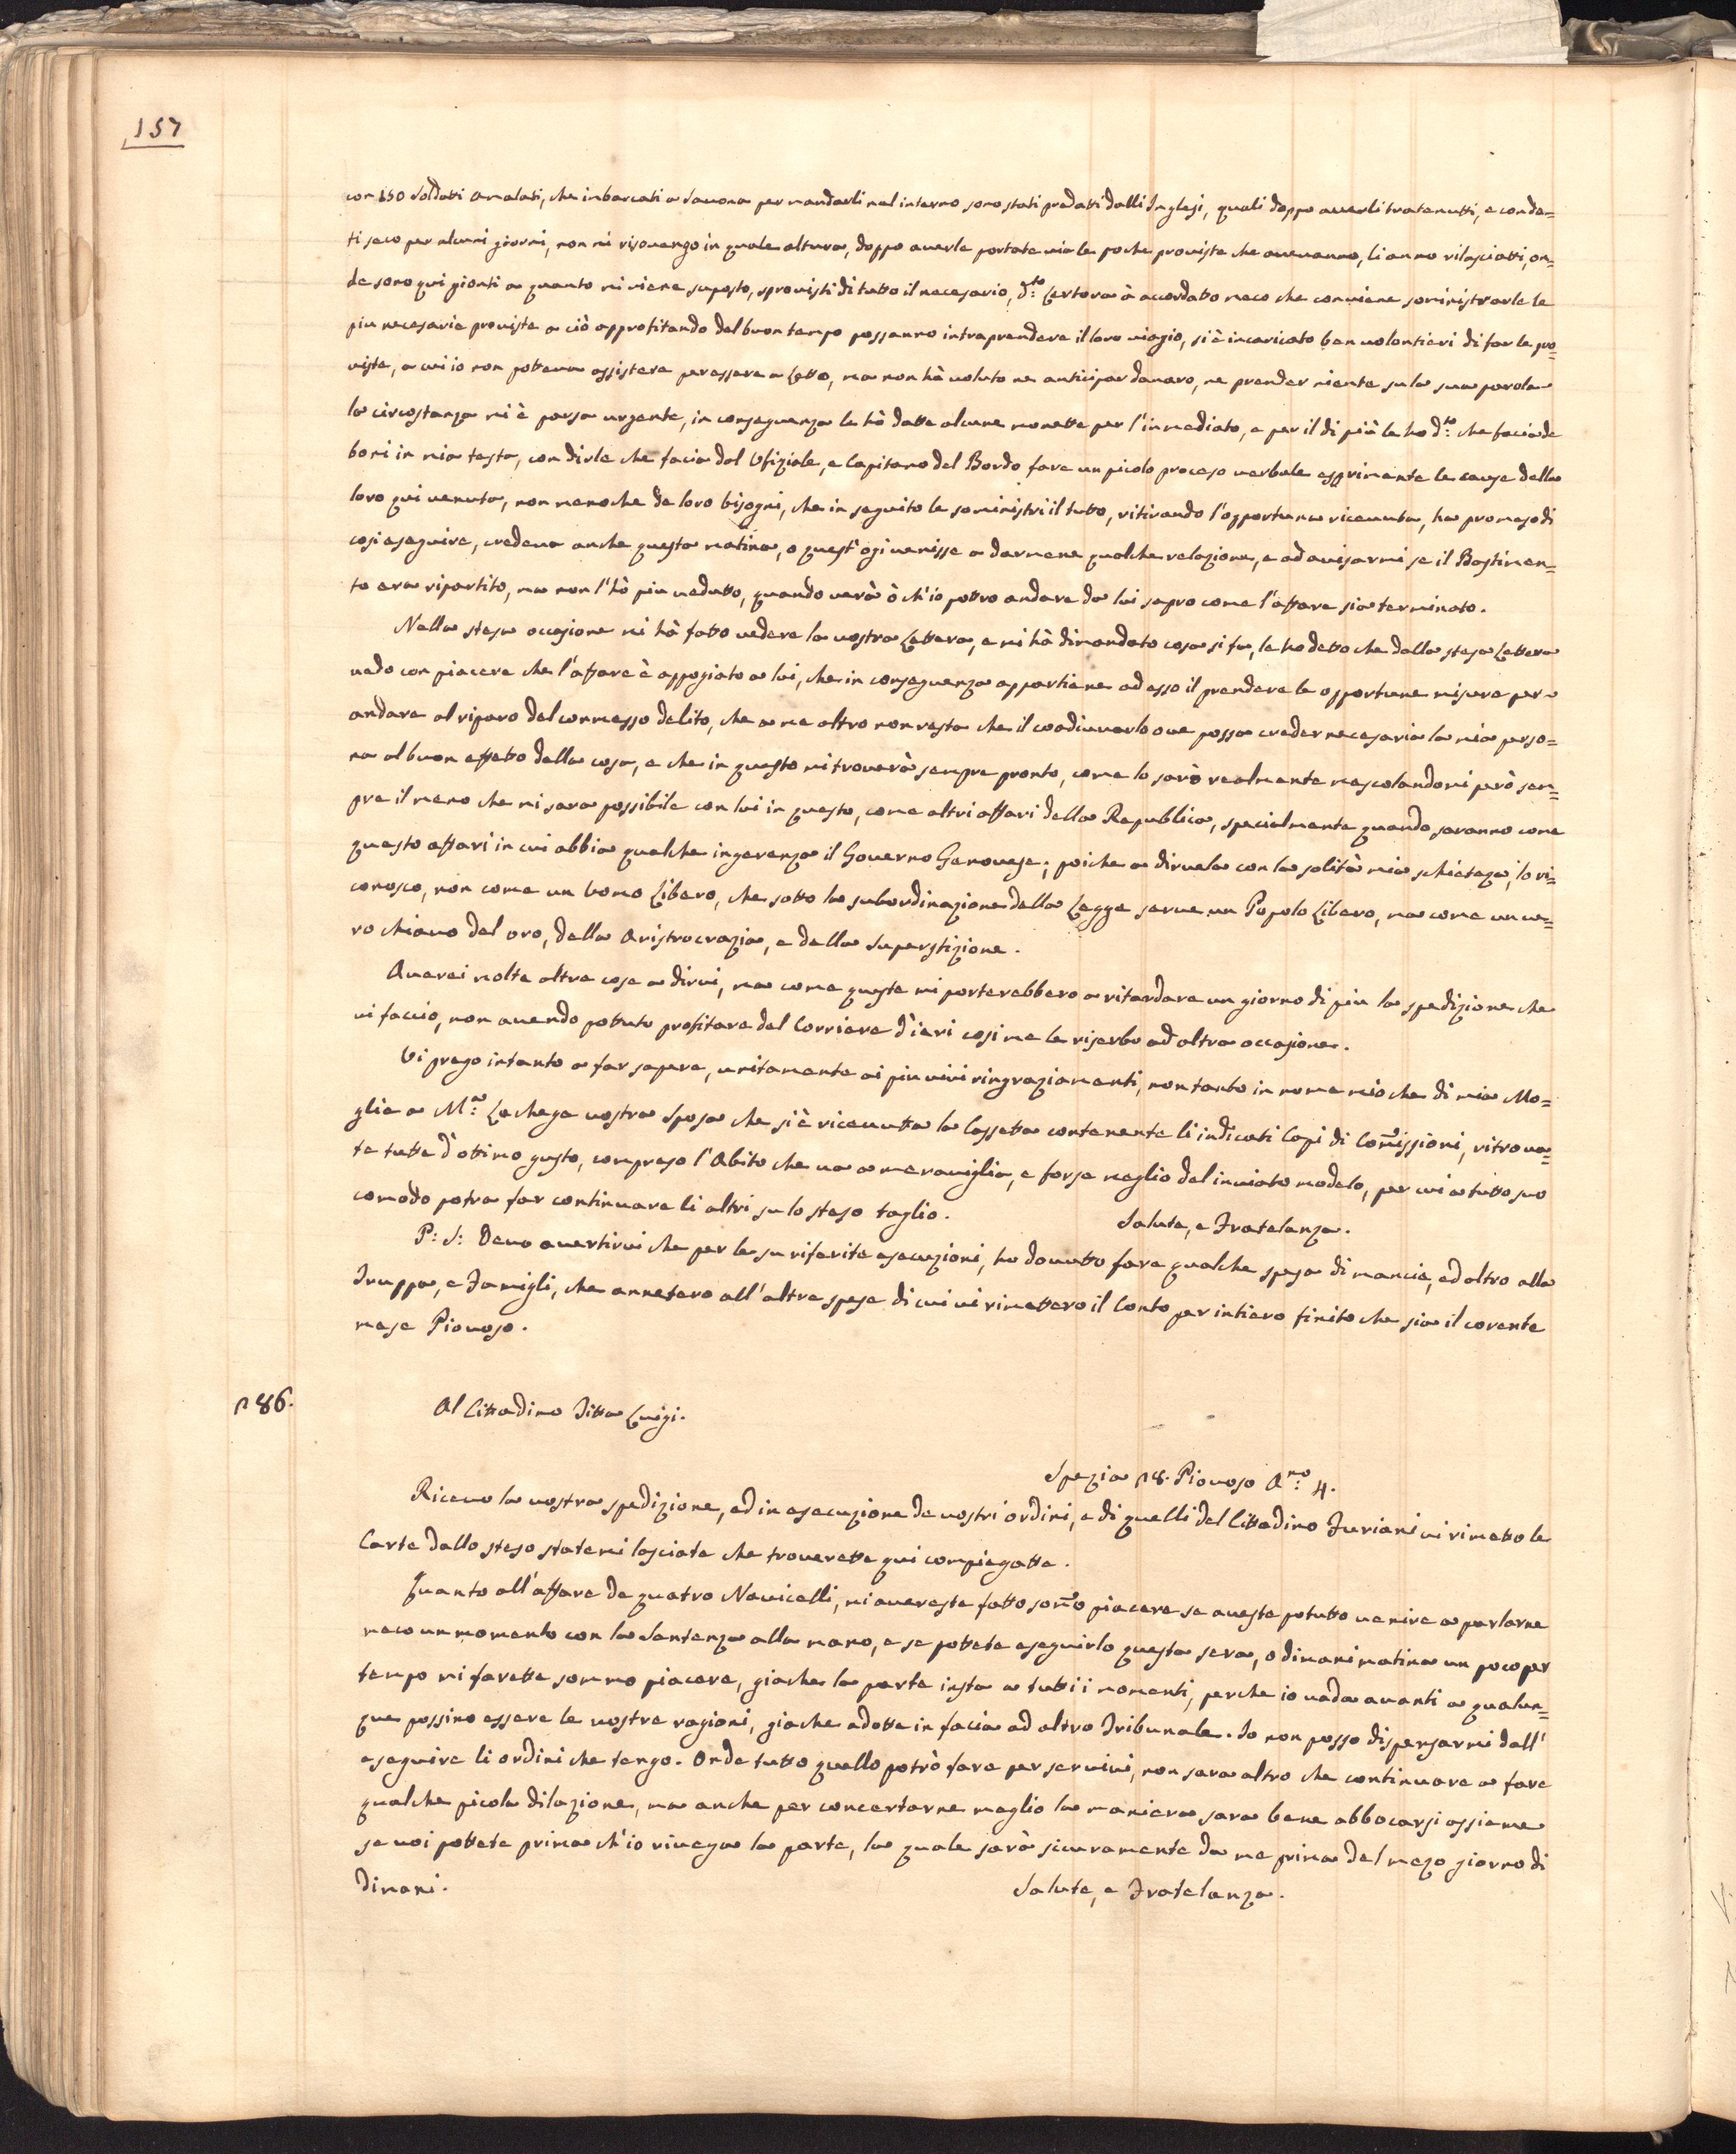 157
con 150 Soldati amalati, che imbarcati a Savona per mandarli nel interno sono stati predatti dalli Inglesi, quali doppo averli tratenutti, e conda=
ti seco per alcuni giorni, non mi risovengo in quale altura, doppo averle portate via le poche proviste che avevanno, li anno rilasciatti, on=
de sono qui gionti a quanto mi viene suposto, sprovisti di tutto il necesario, d:to Certora à accordatto meco che conviene soministrarle le
piu necesarie proviste a ciò approfitando del buon tempo possanno intraprendere il loro viagio, si è incaricato ben volontieri di far le pro=
viste, a cui io non potteva assistere per essere a Letto, ma non hà voluto ne anticipar danaro, ne prender niente su la sua parola
la circostanza mi è parsa urgente, in conseguenza le hò datte alcune monette per l'inmediato, e per il di più le ho d:to che facia de
boni in mia testa, con dirle che facia dal Ufiziale, e Capitano del Bordo fare un picolo proceso verbale esprimente le cause della
loro qui venuta, non meno che de loro bisogni, che in seguito le soministri il tutto, ritirando l'opportuna ricevuta, ha promeso di
cosi eseguire, credeva anche questa matina, o quest'ogi venisse a darmene qualche relazione, e ad avisarmi se il Bastimen=
to era ripartito, ma non l'hò piu vedutto, quando verà ò ch'io potro andare da lui sapro come l'affare sia terminato.
Nella stesa occasione mi hà fatto vedere la vostra Lettera, e mi hà dimandato cosa si fa, le ho detto che dalla stesa Lettera
vedo con piacere che l'affare è appogiato a lui, che in conseguenza appartiene ad esso il prendere le opportune misure per
andare al riparo del commesso delito, che a me altro non resta che il coadiuvarlo ove possa creder necesaria la mia perso=
na al buon effetto della cosa, e che in questo mi troverà sempre pronto, come lo sarò realmente mescolandomi però sem=
pre il meno che mi sara possibile con lui in questo, come altri affari della Republica, specialmente quando saranno come
questo affari in cui abbia qualche ingerenza il Governo Genovese; poiche a dirvela con la solita mia schieteza, io ri=
conosco, non come un Uomo Libero, che sotto la subordinazione della Legge serve un Popolo Libero, ma come un ve=
ro chiavo del oro, della Aristrocrazia, e della Superstizione.
Averei molte altre cose a dirvi, ma come queste mi porterebbero a ritardare un giorno di piu la spedizione che
vi faccio, non avendo potuto profitare del Corriere d'ieri cosi me le riserbo ad altra occasione.
Vi prego intanto a far sapere, unitamente ai piu vivi ringraziamenti, non tanto in nome mio che di mia Mo=
glie a M:a La chege vostra Sposa che si è ricevutta la Cassetta contenente li indicati Capi di Comissioni, ritrova=
te tutte d'ottimo gusto, compreso l'Abito che va a meraviglia, e forse meglio del inviato modelo, per cui a tutto suo
comodo potra far continuare li altri su lo steso taglio.
Salute, e Fratelanza.
P: S: Devo avertirvi che per le su riferite esecuzioni, ho dovutto fare qualche spesa di mancia, ed altro alla
Truppa, e Famigli, che annetero all'altre spese di cui vi rimettero il Conto per intiero finito che sia il corente
mese Piovoso.
n 86.
Al Cittadino Titta Luigi.
Spezia n 8. Piovoso A:no 4.
Ricevo la vostra spedizione, ed in esecuzione de vostri ordini, e di quelli del Cittadino Furiani vi rimetto le
Carte dallo steso statemi lasciate che troverette qui compiegatte.
Quanto all'affare de quatro Navicelli, mi avereste fatto somo piacere se aveste potutto venire a parlarne
meco un momento con la Sentenza alla mano, e se pottete eseguirlo questa sera, o dimani matina un poco per
tempo mi farette sommo piacere, giache la parte insta a tutti i momenti, perche io vada avanti a qualun=
que possino essere le vostre ragioni, giache adotte in facia ad altro Tribunale. Io non posso dispensarmi dall'
eseguire li ordini che tengo. Onde tutto quello potrò fare per servirvi, non sara altro che continuare a fare
qualche picola dilazione, ma anche per concertarne meglio la maniera sara bene abbocarsi assieme
se voi pottete prima ch'io rivega la parte, la quale sarà sicuramente da me prima del mezo giorno di
dimani.
Salute, e Fratelanza.